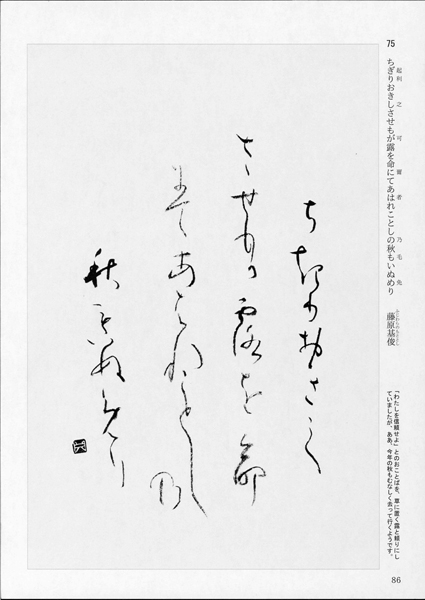 75
ちぎりおきしさせもが露を命にてあはれことしの秋もいぬめり
起利 之 可 爾 者 乃 毛 免
藤原基俊
ふじわらのもととし
「わたしを信頼せよ」とのおことばを、草に置く露と頼りにし
ていましたが、ああ、今年の秋もむなしく去って行くようです。
ち起利おきし
させも可露を命
爾てあはれことし
乃
秋毛いぬめり
86